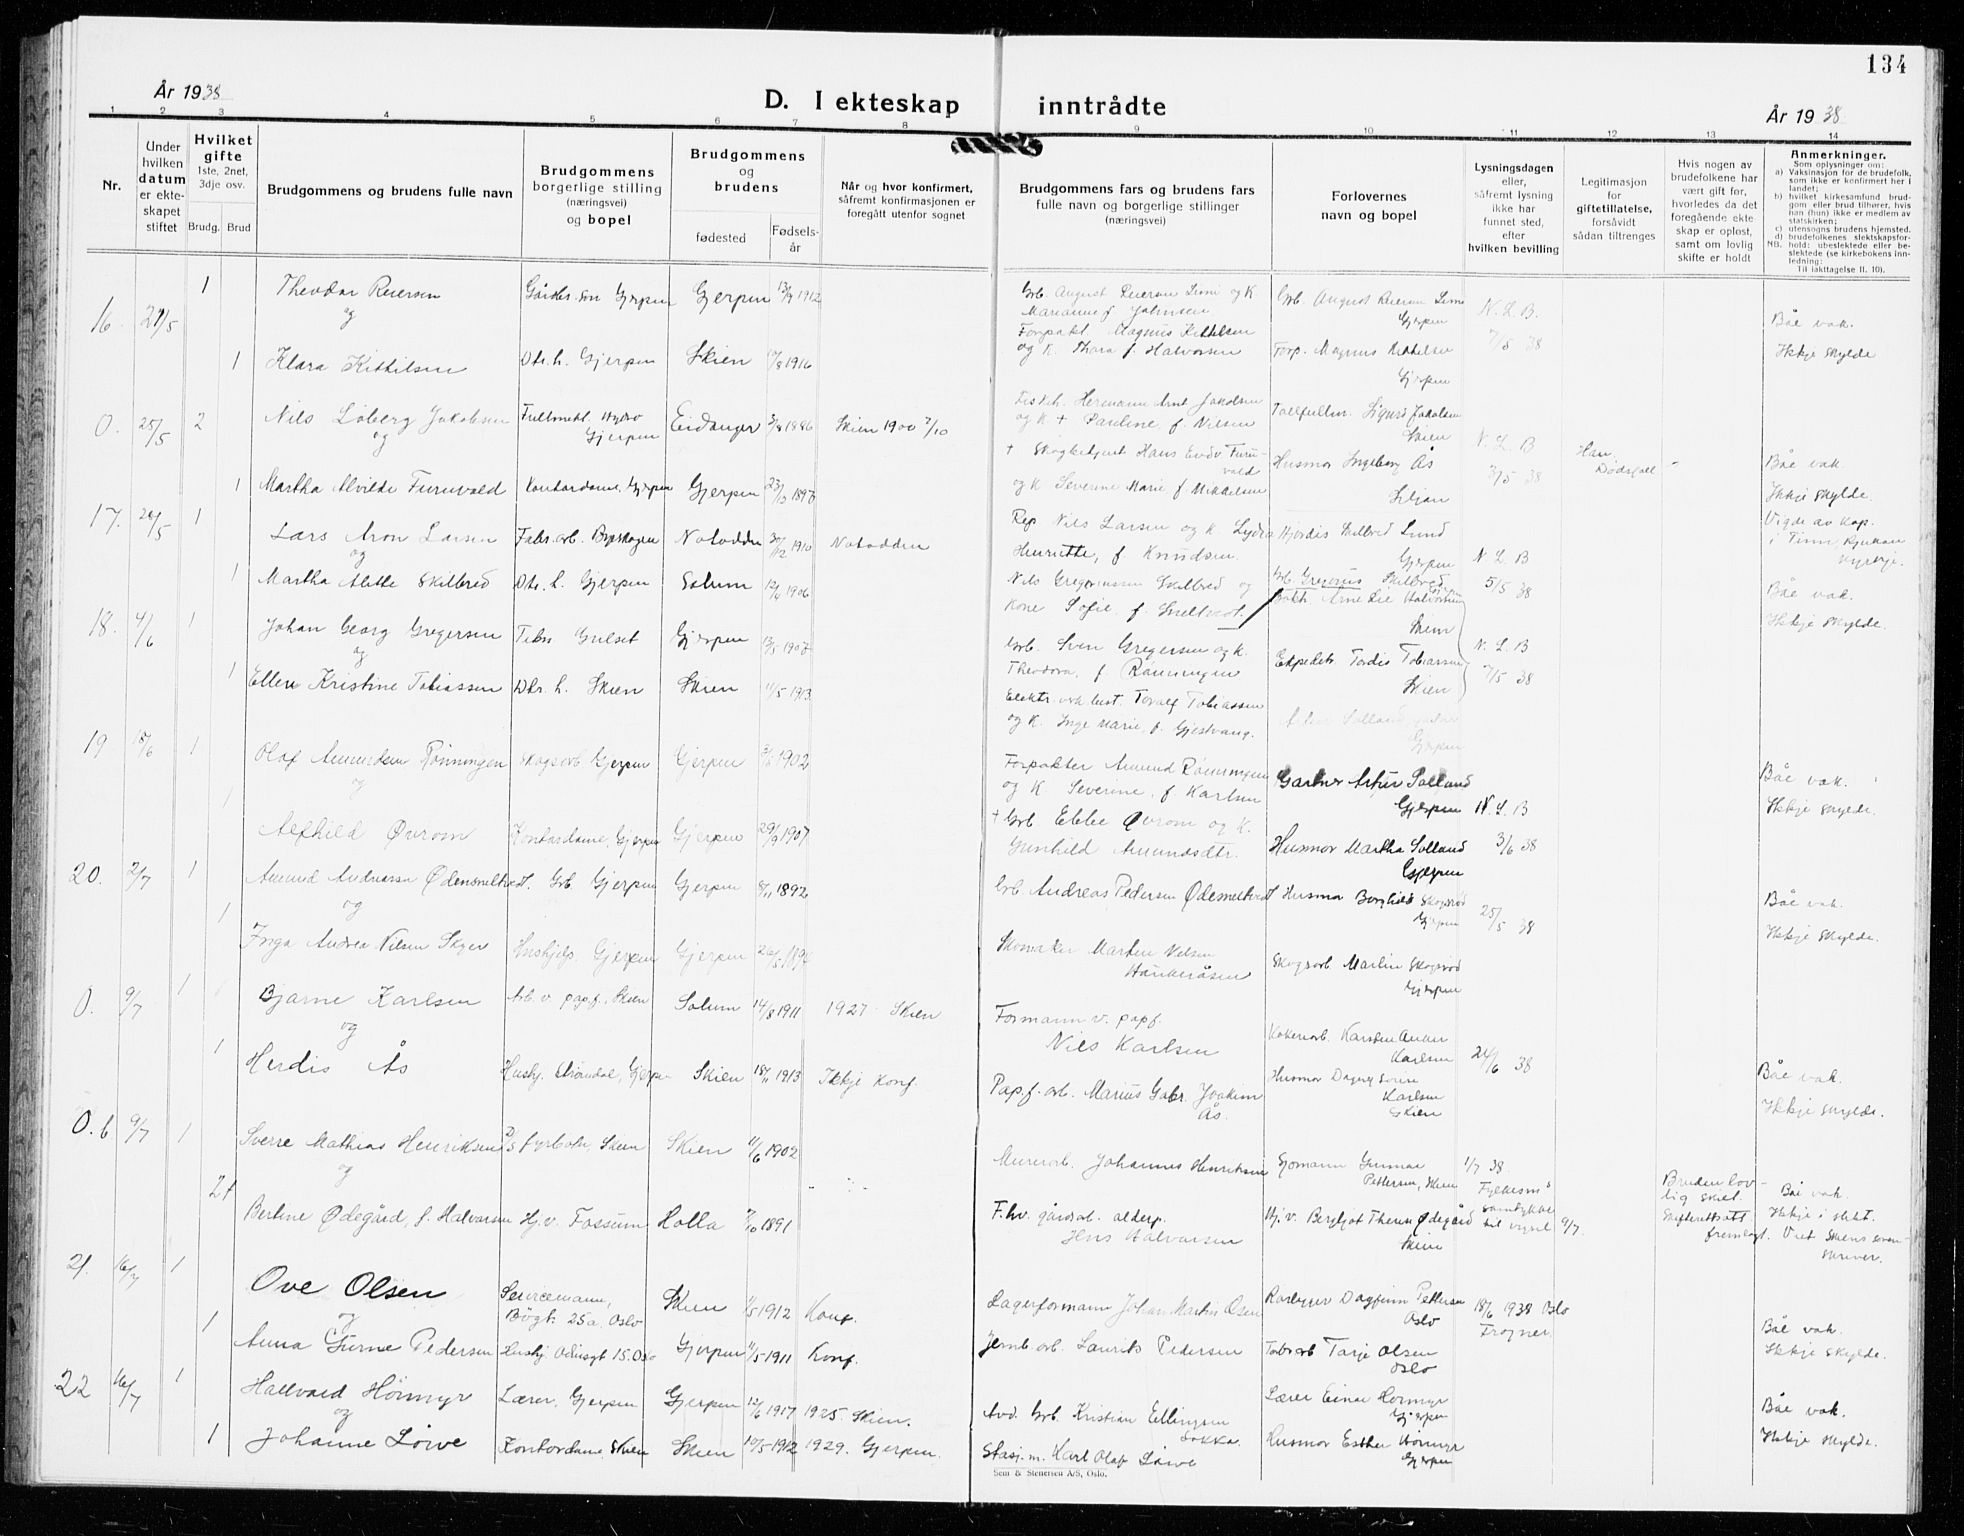 134
År 1938
D. I ekteskap inntrådte
År 1938
1 2 3 4 5 6 7 8 9 10 11 12 13 14
Nr.
Under hvilken datum er ekteskapet stiftet
Hvilket gifte
1ste, 2net, 3dje osv.
Brudg. Brud
Brudgommens og brudens fulle navn
Brudgommens borgerlige stilling (næringsvei) og bopel
Brudgommens og brudens
fødested
Fødselsår
Når og hvor konfirmert, såfremt konfirmasjonen er foregått utenfor sognet
Brudgommens fars og brudens fars fulle navn og borgerlige stillinger (næringsvei)
Forlovernes navn og bopel
Lysningsdagen eller, såfremt lysning ikke har funnet sted, efter hvilken bevilling
Legitimasjon for giftetillatelse, forsåvidt sådan tiltrenges
Hvis nogen av brudefolkene har vært gift før, hvorledes da det foregående ekteskap er oplost, samt om lovlig skifte er holdt
Anmerkninger.
Som oplysninger om:
a) Vaksinasjon for de brudefolk, som ikke er konfirmert her i landet;
b) hvilket kirkesamfund brudgom eller brud tilhører, hvis han (hun) ikke er medlem av statskirken;
c) utensogns brudens hjemsted.
d) brudefolkenes slektskapsforhold: ubeslektede eller beslektede (se kirkebokens innledning:
NB. Til iakttagelse II, 10).
16. 21/5 1 Theodor Reiersen Gjerpen Gjerpen 1912
og
1 Klara Kittilsen Dtr. h. Gjerpen Skien 1916
Grb. August Reiersen Limi og K.
Marianne f. Johnsen
Forpakt. Magnus Kittilsen
og K. Thora f. Halvorsen
Grb. August Reiersen Limi
Gjerpen
Forp. Magnus Kittilsen
Gjerpen
N. L. B.
7/5 38
Båe vak.
Ikkje skylde
0. 25/5 2 Nils Löberg Jakobsen Hydro Gjerpen Eidanger 1886 Skien 1900 7/10
og
1 Martha Alvilde Furuvald Kontordame, Gjerpen Gjerpen 1897
Hermann Arnt Jakobsen
og K + Pauline f. Nilsen
+ Skogbetjent Hans Edv. Furuvald
og K Severine Marie f. Mikkelsen
Sigurd Jakobsen
Skien
Husmor Ingeborg Ås
Siljan
N. L. B
3/5 38
Han
Dødsfall
Båe vak.
Ikkje skylde
Vigde av kap.
i Tinn, Rjukan
17. 26/5 1 Lars Aron Larsen Fabr. arb. Gjerpen Notodden 30/12 1910 Notodden
og
1 Martha Alette Skilbred Dtr. h. Gjerpen Solum 12/4 1906
Rep Nils Larsen og K. Lydia
Henriette, f. Knudsen.
Nils Gregoriussen Skilbred og
Kone Sofie f. Sneltvedt.
Hjørdis Skilbred Lund
Gjerpen
Grb. Gregorius Skilbred
Gjerpen
N. L. B
5/5 38
Båe vak.
Ikkje skylde.
18. 4/6 1 Johan Georg Gregersen Gulset Gjerpen 1907
og
1 Ellen Kristine Tobiassen Dtr. h. Skien Skien 11/5 1913
Grb. Sven Gregersen og K.
Theodora, f. Rönningen
Toralf Tobiassen
og K. Inga Marie, f. Gjestvang.
Arne Lie Halvorsen
Skien
Ekspeditr Tordis Tobiassen
Skien
N. L. B
7/5 38
19 18/6 1 Olaf Amundsen Rönningen Skogsarb Gjerpen Gjerpen 1902
og
1 Alfhild Øvrom Kontordame, Gjerpen Gjerpen 29/9 1907
Forpakter Amund Rönningen
og K. Severine, f. Karlsen
+ Grb. Ellef Øvrom og K.
Gunhild Amundsdtr.
Gartner Artur Solland
Gjerpen
Husmor Martha Solland
Gjerpen
N. L. B
3/6 38
Båe vak.
Ikkje skylde.
20. 2/7 1 Amund Andreassen Ødemeltvedt. Grb Gjerpen Gjerpen 8/11 1892
og
1 Inga Andrea Nilsen Skyer Hushjelp. Gjerpen Gjerpen 26/5 1894
Grb. Andreas Pedersen Ødemeltvedt
Skomaker Marten Nilsen
Haukeråsen
Husmor Borghild Skogsrød
Gjerpen
Skogsarb. Martin Skogsrød
Gjerpen
25/5 38
Båe vak.
Ikkje skylde.
0. 9/7 1 Bjarne Karlsen Arb. v. papf., Skien Solum 14/8 1911 1927 Skien
og
1 Herdis Ås Hushj. Strömdal, Gjerpen Skien 18/11 1913 Ikkje Konf.
Formann v. papf.
Nils Karlsen
Pap.f. arb. Marius Gabr. Joakim
Ås.
Karsten Anker
Karlsen
Husmor Dagny Sofie
Karlsen
Skien
24/6 38
Båe vak.
Ikkje skylde.
0.b 9/7 1 Sverre Mathias Henriksen fyrbøter, Skien Skien 11/6 1902
og
2 + Bertine Ødegård, f. Halvorsen Hj.v. Fossum Holla 1891
Murerarb. Johannes Henriksen
F.hv. gårdsarb. alderp.
Jens Halvorsen
Sjømann Gunnar
Pettersen, Skien
Hj. v. Bergljot Therese Ødegård
Skien
1/7 38.
Fylkesm's
samtykke
til vigsel 9/7
Bruden lovlig skilt.
Skifterettsatt.
fremlagt.
Båe vak.
Ikkje i slekt.
Viet Skiens sorenskriver.
21. 16/7 1 Ove Olsen Servicemann, Bögt. 25a, Oslo Skien 1/5 1912 Konf.
og
1 Anna Gurine Pedersen Hushj. Odinsgt 15. Oslo Gjerpen 11/5 1911 Konf.
Lagerformann Johan Martin Olsen
Jernb. arb. Laurits Pedersen
Rörlegger Dagfinn Pettersen
Oslo
Tarje Olsen
Oslo
18/6 1938 Oslo
Frogner.
Båe vak.
Ikkje skylde.
22 16/7 1 Hallvard Hörmyr Lærer, Gjerpen Gjerpen 12/6 1917 1925. Skien.
og
1 Johanne Löwe Kontordame, Skien Skien 10/5 1912 1929. Gjerpen.
Avd. Grb. Kristian Ellingsen
Løkka.
Stasj.m. Karl Olaf Löwe
Lærer Einar Hörmyr
Gjerpen
Husmor Esther Hörmyr
Gjerpen
Båe vak.
Ikkje skylde.
Sem & Stenersen A/S, Oslo.